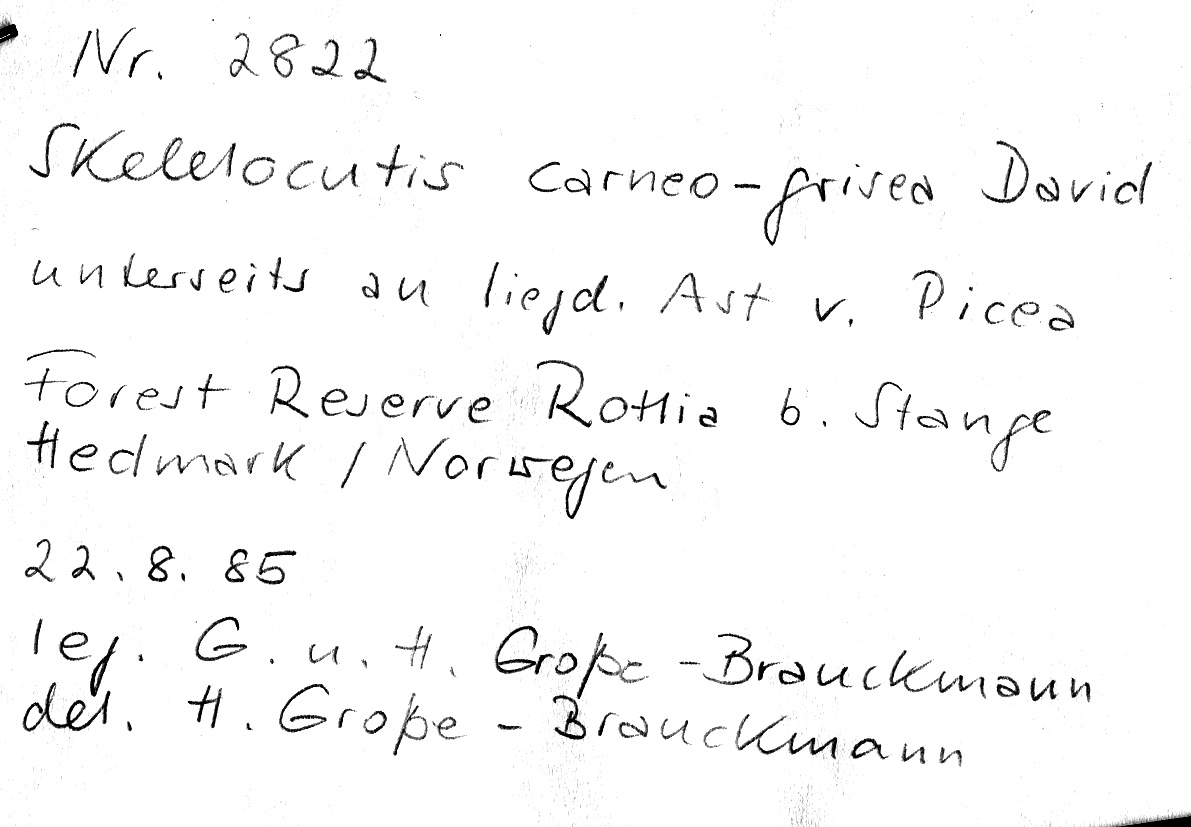 Nr. 2822
Skeletocutis carneo-grisea David
unterseits an liegd. Ast v. Picea
Forest Reserve Rottlia b. Stange
Hedmark / Norwegen
22. 8. 85
leg. G. u. H. Große-Brauckmann
det. H. Große-Brauckmann